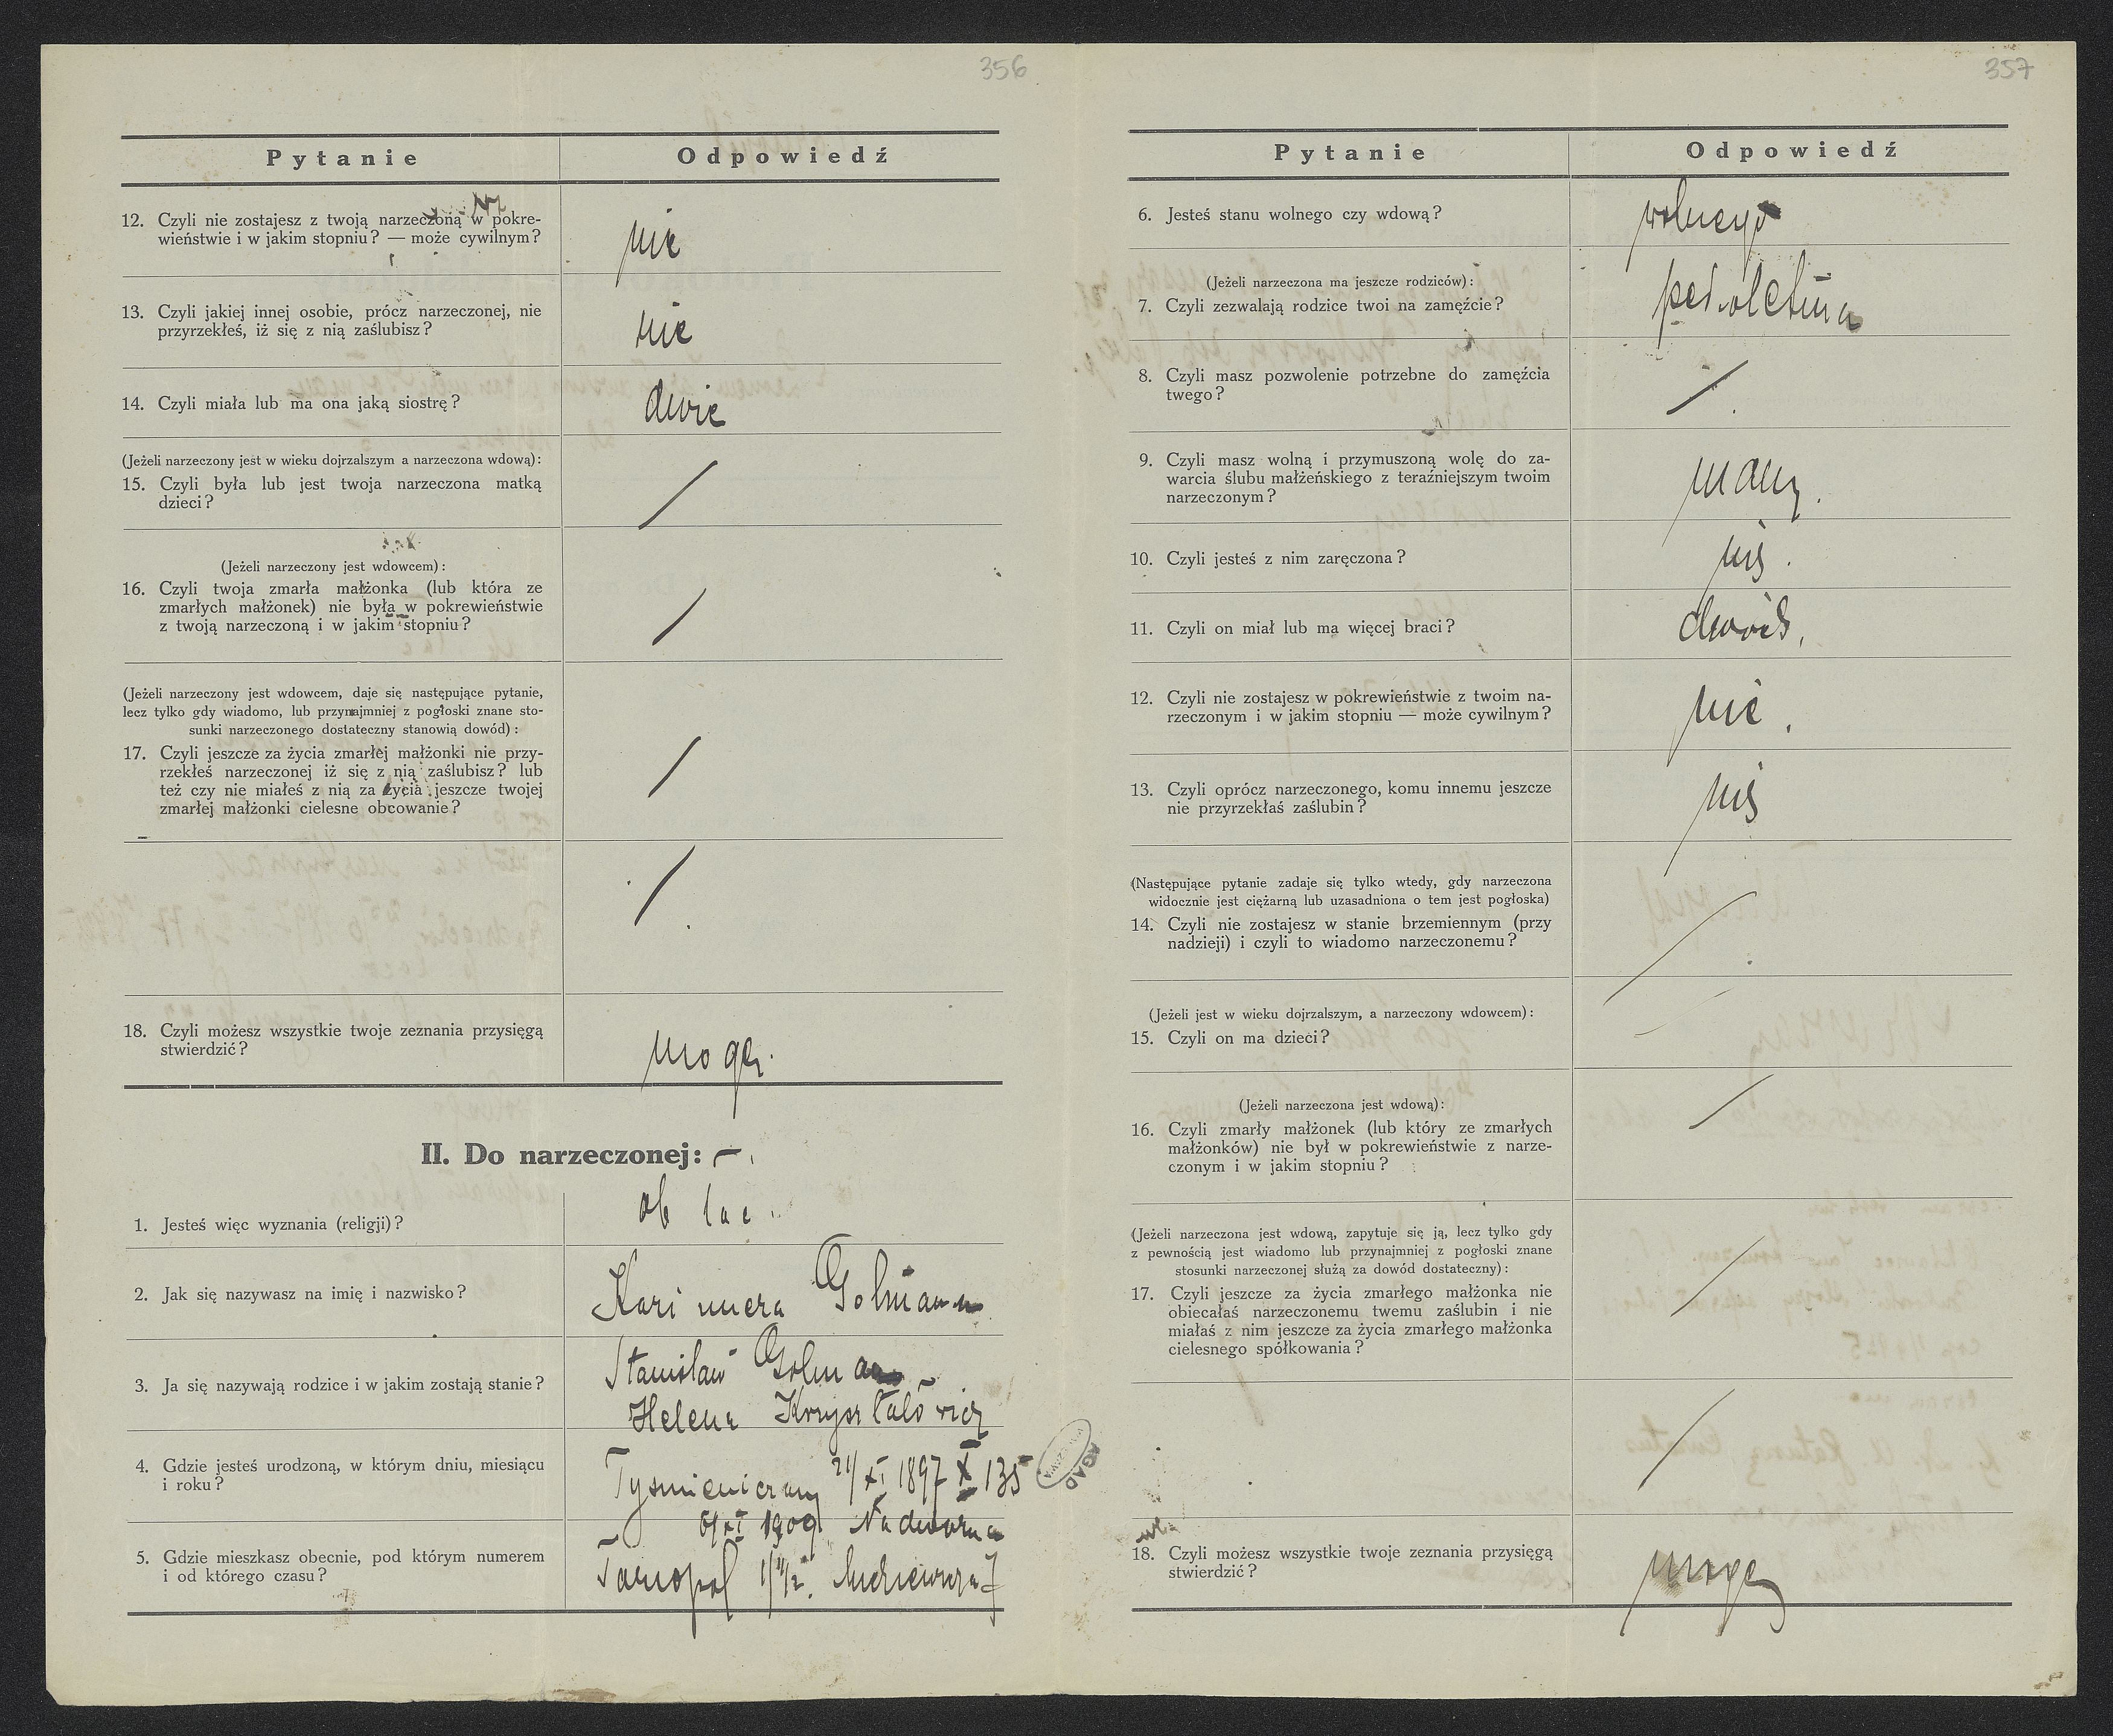 356
Pytanie
Odpowiedź
12. Czyli nie zostajesz z twoją narzeczoną w pokre-
wieństwie i w jakim stopniu? — może cywilnym?
nie
13. Czyli jakiej innej osobie, prócz narzeczonej, nie
przyrzekłeś, iż się z nią zaślubisz?
nie
14. Czyli miała lub ma ona jaką siostrę?
dwie
(Jeżeli narzeczony jest w wieku dojrzalszym a narzeczona wdową):
15. Czyli była lub jest twoja narzeczona matką
dzieci?
/
(Jeżeli narzeczony jest wdowcem):
16. Czyli twoja zmarła małżonka (lub która ze
zmarłych małżonek) nie była w pokrewieństwie
z twoją narzeczoną i w jakim stopniu?
/
(Jeżeli narzeczony jest wdowcem, daje się następujące pytanie,
lecz tylko gdy wiadomo, lub przynajmniej z pogłoski znane sto-
sunki narzeczonego dostateczny stanowią dowód):
17. Czyli jeszcze za życia zmarłej małżonki nie przy-
rzekłeś narzeczonej iż się z nią zaślubisz? lub
też czy nie miałeś z nią za życia jeszcze twojej
zmarłej małżonki cielesne obcowanie?
/
/
18. Czyli możesz wszystkie twoje zeznania przysięgą
stwierdzić?
mogę.
II. Do narzeczonej:
1. Jesteś więc wyznania (religji)?
ob łac.
2. Jak się nazywasz na imię i nazwisko?
Kazimiera Golman
3. Ja się nazywają rodzice i w jakim zostają stanie?
Stanisław Golman
Helena Krzyształowicz
4. Gdzie jesteś urodzoną, w którym dniu, miesiącu
i roku?
Tysmieniczany 21/XI 1897 X 135
XI 1909 Nadworna
5. Gdzie mieszkasz obecnie, pod którym numerem
i od którego czasu?
Tarnopol
AGAD
WARSZAWA
357
Pytanie
Odpowiedź
6. Jesteś stanu wolnego czy wdową?
wolnego
(Jeżeli narzeczona ma jeszcze rodziców):
7. Czyli zezwalają rodzice twoi na zamęźcie?
pełnoletnia
8. Czyli masz pozwolenie potrzebne do zamęźcia
twego?
/
9. Czyli masz wolną i przymuszoną wolę do za-
warcia ślubu małżeńskiego z teraźniejszym twoim
narzeczonym?
mam.
10. Czyli jesteś z nim zaręczona?
nie.
11. Czyli on miał lub ma więcej braci?
dwóch,
12. Czyli nie zostajesz w pokrewieństwie z twoim na-
rzeczonym i w jakim stopniu — może cywilnym?
nie.
13. Czyli oprócz narzeczonego, komu innemu jeszcze
nie przyrzekłaś zaślubin?
nie
(Następujące pytanie zadaje się tylko wtedy, gdy narzeczona
widocznie jest ciężarną lub uzasadniona o tem jest pogłoska)
14. Czyli nie zostajesz w stanie brzemiennym (przy
nadzieji) i czyli to wiadomo narzeczonemu?
/
(Jeżeli jest w wieku dojrzalszym, a narzeczony wdowcem):
15. Czyli on ma dzieci?
(Jeżeli narzeczona jest wdową):
16. Czyli zmarły małżonek (lub który ze zmarłych
małżonków) nie był w pokrewieństwie z narze-
czonym i w jakim stopniu?
/
(Jeżeli narzeczona jest wdową, zapytuje się ją, lecz tylko gdy
z pewnością jest wiadomo lub przynajmniej z pogłoski znane
stosunki narzeczonej służą za dowód dostateczny):
17. Czyli jeszcze za życia zmarłego małżonka nie
obiecałaś narzeczonemu twemu zaślubin i nie
miałaś z nim jeszcze za życia zmarłego małżonka
cielesnego spółkowania?
/
/
18. Czyli możesz wszystkie twoje zeznania przysięgą
stwierdzić?
mogę